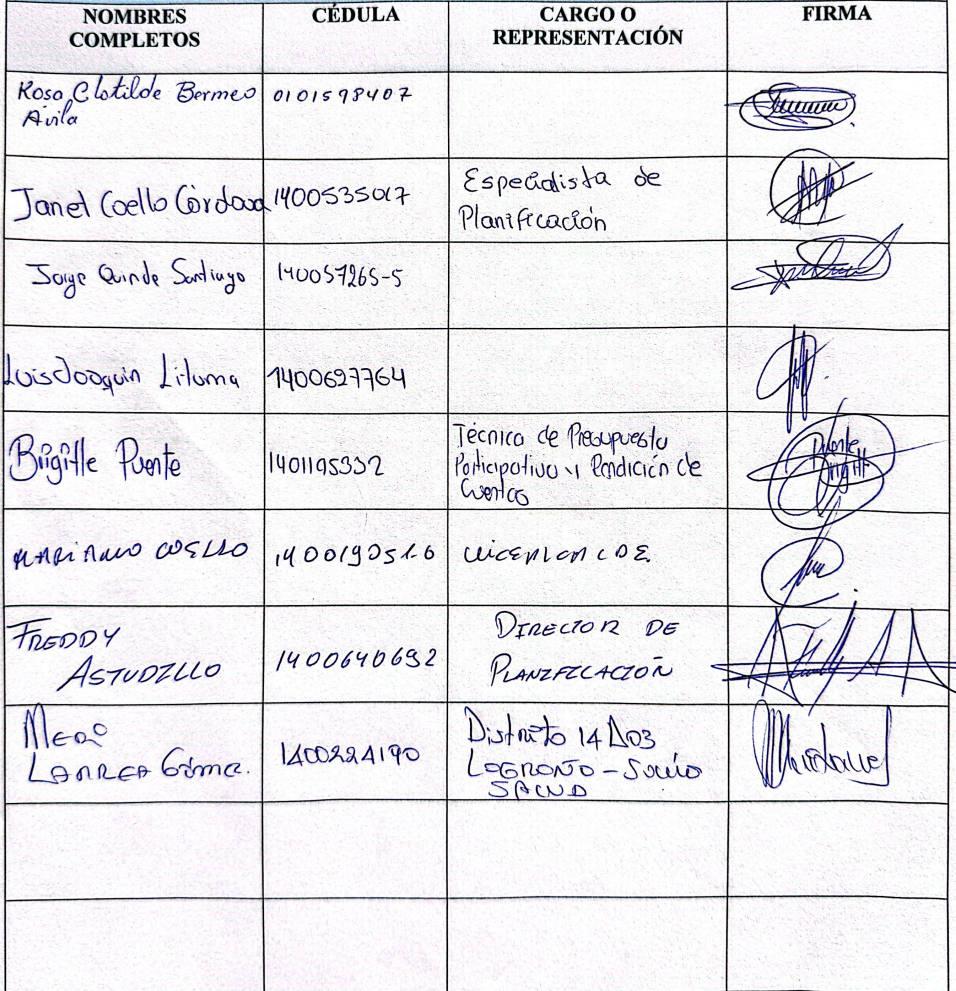 NOMBRES COMPLETOS CÉDULA CARGO O REPRESENTACIÓN FIRMA
Rosa Clotilde Bermeo 0101598407
Avila
Janet Coello Córdova 1400535017 Especialista de
Planificación
Jorge Quinde Santiago 140057265-5
Luis Joaquin Lituma 1400627764
Brigitte Puente 1401195332 Técnica de Presupuesto
Participativo y Rendición de
Cuentas
Puente
Brigitt
MARIANO COELLO 1400190510 VICEALCALDE
FREDDY DIRECTOR DE
ASTUDILLO 1400640692 PLANIFICACIÓN
LARREA 1400224190 Distrito 14D03
LOGROÑO - Sucúa
SALUD